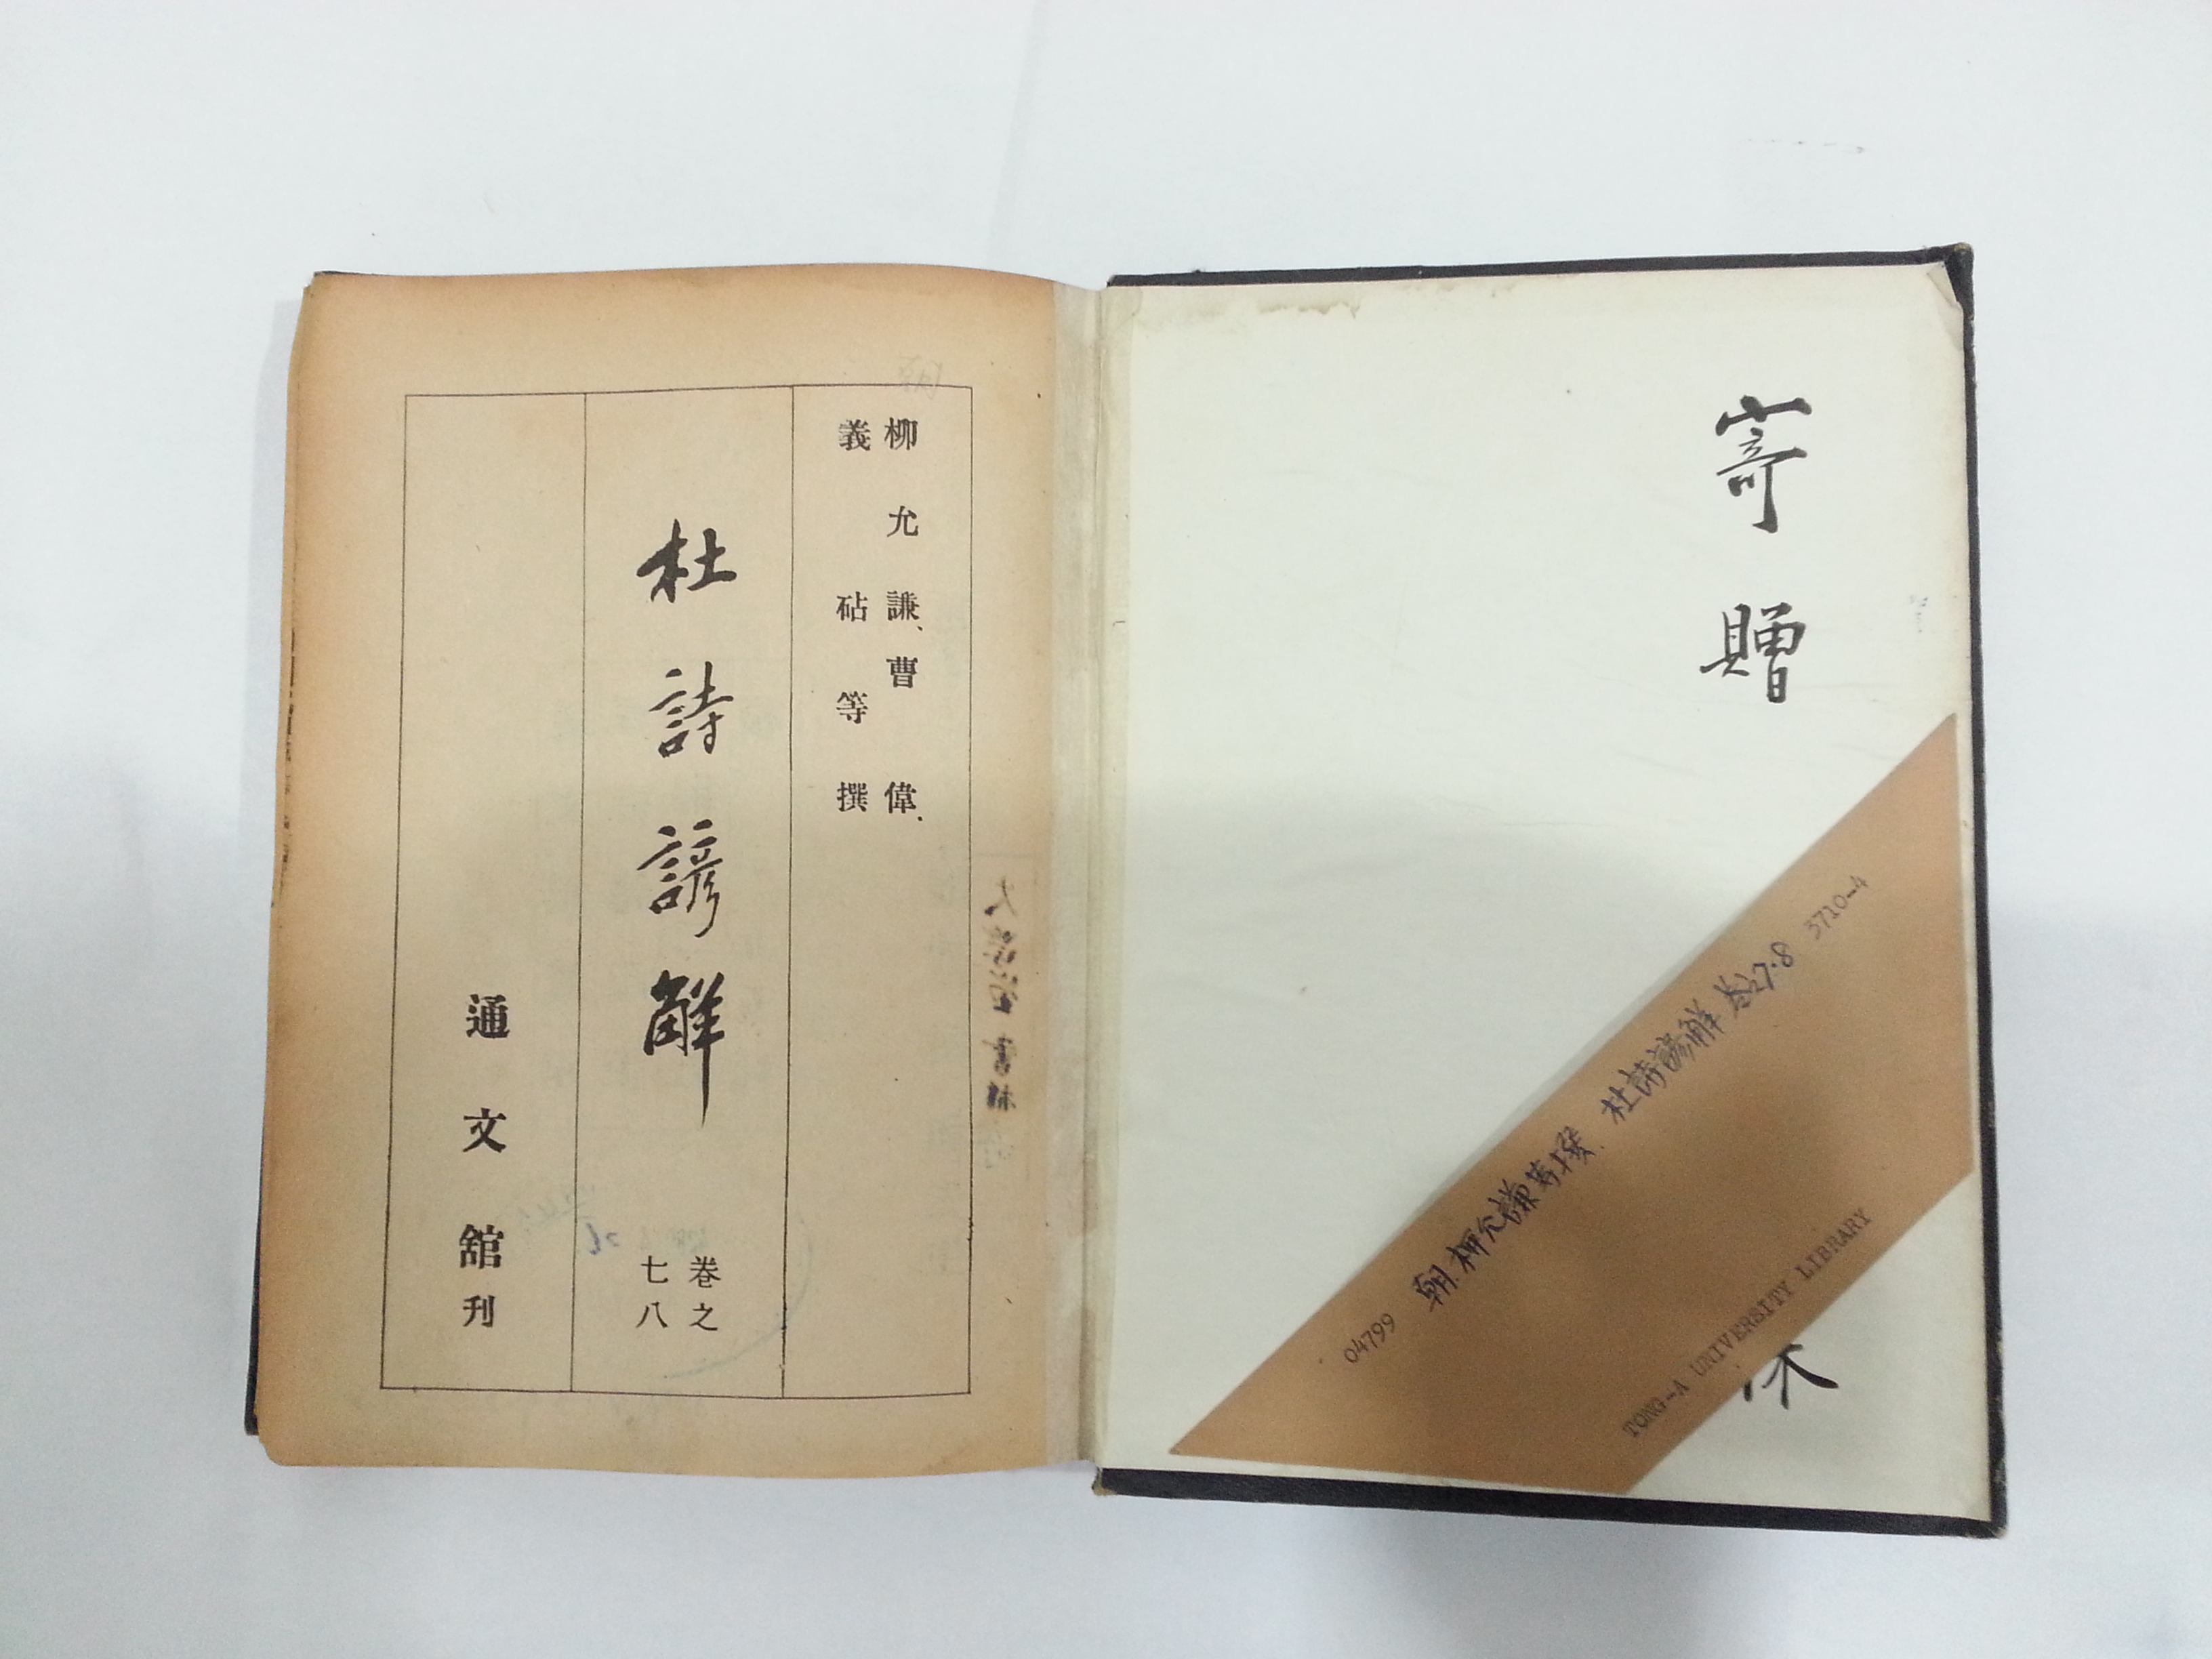 寄贈
04799 朝 柳允謙等撰. 杜詩諺解 卷之7.8 3710-4
TONG-A UNIVERSITY LIBRARY
柳允謙、曹偉、
義砧等撰
杜詩諺解
卷之
七八
通文舘刊